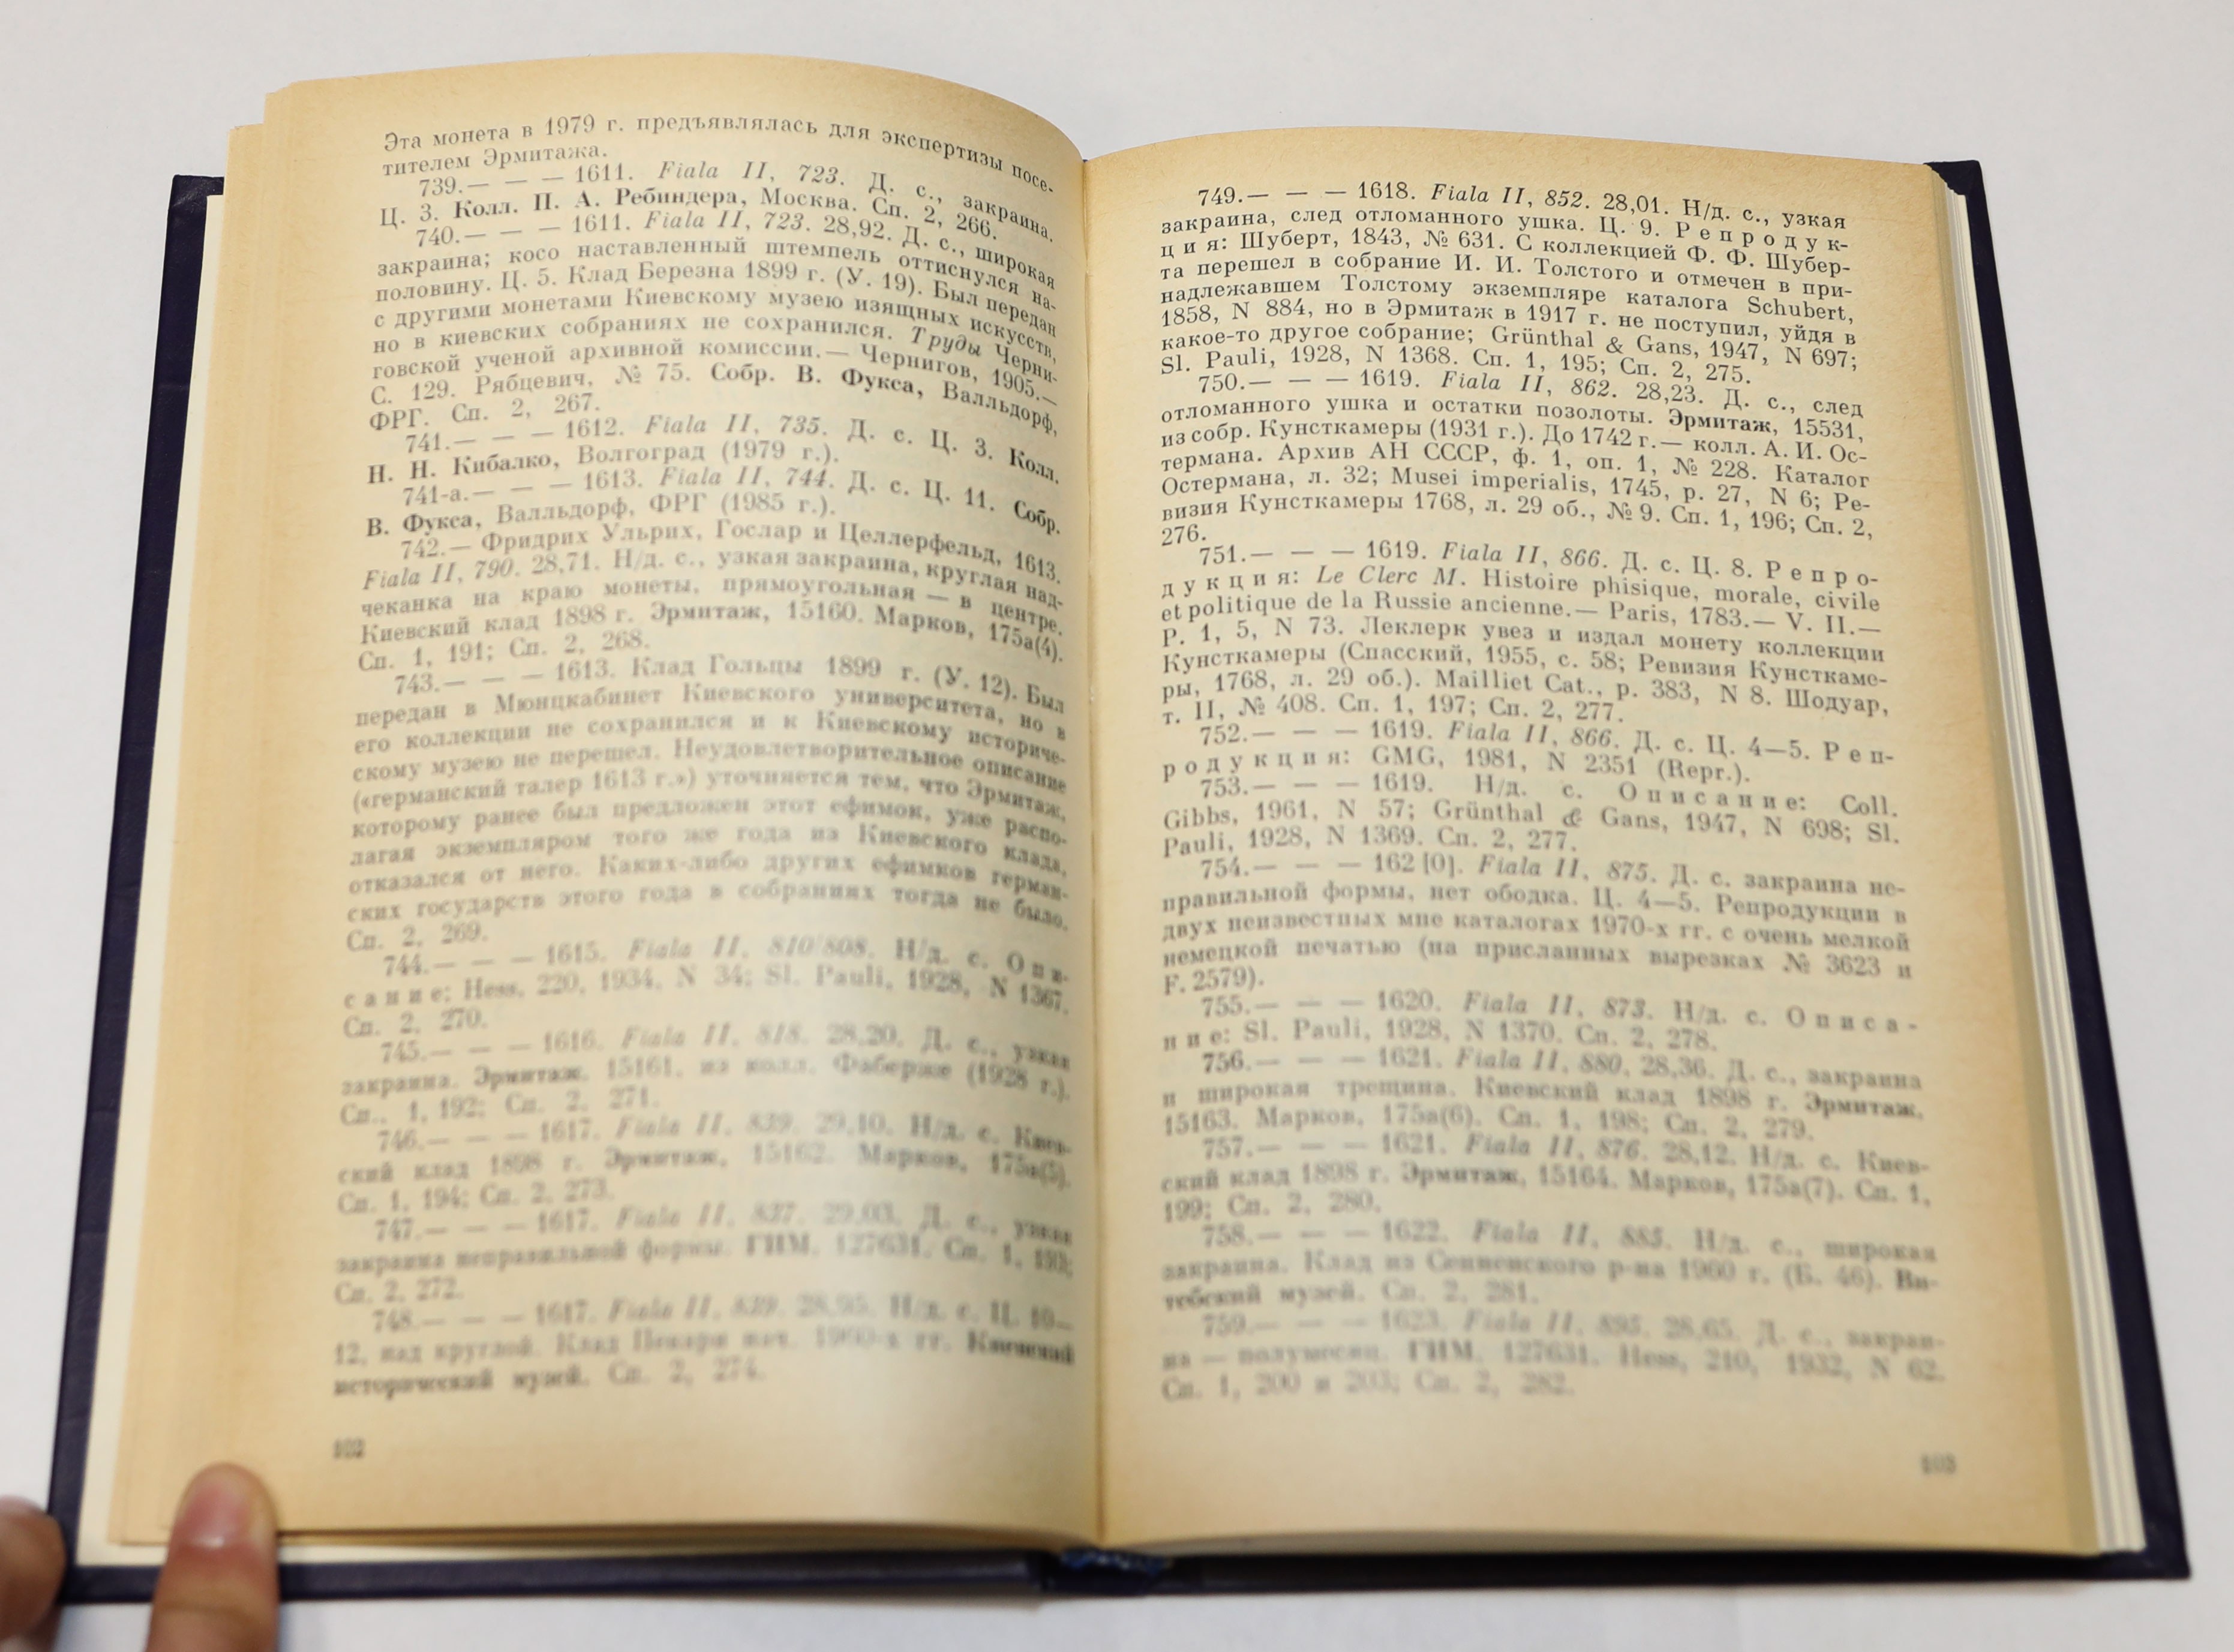 Эта монета в 1979 г. предъявлялась для экспертизы посе-
тителем Эрмитажа.
739.— — — 1611. Fiala II, 723. Д. с., закраина.
Ц. 3. Колл. П. А. Ребиндера, Москва. Сп. 2, 266.
740.— — — 1611. Fiala II, 723. 28,92. Д. с., широкая
закраина; косо наставленный штемпель оттиснулся на-
половину. Ц. 5. Клад Березна 1899 г. (У. 19). Был передан
с другими монетами Киевскому музею изящных искусств,
но в киевских собраниях не сохранился. Труды Черни-
говской ученой архивной комиссии.— Чернигов, 1905.—
С. 129. Рябцевич, № 75. Собр. В. Фукса, Валльдорф,
ФРГ. Сп. 2, 267.
741.— — — 1612. Fiala II, 735. Д. с. Ц. 3. Колл.
Н. Н. Кибалко, Волгоград (1979 г.).
741-а.— — — 1613. Fiala II, 744. Д. с. Ц. 11. Собр.
В. Фукса, Валльдорф, ФРГ (1985 г.).
742.— Фридрих Ульрих, Гослар и Целлерфельд, 1613.
Fiala II, 790. 28,71. Н/д. с., узкая закраина, круглая над-
чеканка на краю монеты, прямоугольная — в центре.
Киевский клад 1898 г. Эрмитаж, 15160. Марков, 175а(4).
Сп. 1, 191; Сп. 2, 268.
743.— — — 1613. Клад Гольцы 1899 г. (У. 12). Был
передан в Мюнцкабинет Киевского университета, но в
его коллекции не сохранился и к Киевскому историче-
скому музею не перешел. Неудовлетворительное описание
(«германский талер 1613 г.») уточняется тем, что Эрмитаж,
которому ранее был предложен этот ефимок, уже распо-
лагая экземпляром того же года из Киевского клада,
отказался от него. Каких-либо других ефимков герман-
ских государств этого года в собраниях тогда не было.
Сп. 2, 269.
744.— — — 1615. Fiala II, 810/808. Н/д. с. Опи-
сание: Hess, 220, 1934, N 34; Sl. Pauli, 1928, N 1367.
Сп. 2, 270.
745.— — — 1616. Fiala II, 818. 28,20. Д. с., узкая
закраина. Эрмитаж, 15161, из колл. Фаберже (1928 г.).
Сп., 1, 192; Сп. 2, 271.
746.— — — 1617. Fiala II, 839. 29,10. Н/д. с. Киев-
ский клад 1898 г. Эрмитаж, 15162. Марков, 175а(5).
Сп. 1, 194; Сп. 2, 273.
747.— — — 1617. Fiala II, 837. 29,03. Д. с., узкая
закраина неправильной формы. ГИМ, 127631. Сп. 1, 193;
Сп. 2, 272.
748.— — — 1617. Fiala II, 839. 28,95. Н/д. с. Ц. 10—
12, над круглой. Клад нач. 1900-х гг. Киевский
исторический музей. Сп. 2, 274.
102
749.— — — 1618. Fiala II, 852. 28,01. Н/д. с., узкая
закраина, след отломанного ушка. Ц. 9. Репродук-
ция: Шуберт, 1843, № 631. С коллекцией Ф. Ф. Шубер-
та перешел в собрание И. И. Толстого и отмечен в при-
надлежавшем Толстому экземпляре каталога Schubert,
1858, N 884, но в Эрмитаж в 1917 г. не поступил, уйдя в
какое-то другое собрание; Grünthal & Gans, 1947, N 697;
Sl. Pauli, 1928, N 1368. Сп. 1, 195; Сп. 2, 275.
750.— — — 1619. Fiala II, 862. 28,23. Д. с., след
отломанного ушка и остатки позолоты. Эрмитаж, 15531,
из собр. Кунсткамеры (1931 г.). До 1742 г.— колл. А. И. Ос-
термана. Архив АН СССР, ф. 1, оп. 1, № 228. Каталог
Остермана, л. 32; Musei imperialis, 1745, p. 27, N 6; Ре-
визия Кунсткамеры 1768, л. 29 об., № 9. Сп. 1, 196; Сп. 2,
276.
751.— — — 1619. Fiala II, 866. Д. с. Ц. 8. Репро-
дукция: Le Clerc M. Histoire phisique, morale, civile
et politique de la Russie ancienne.— Paris, 1783.— V. II.—
P. 1, 5, N 73. Леклерк увез и издал монету коллекции
Кунсткамеры (Спасский, 1955, с. 58; Ревизия Кунсткаме-
ры, 1768, л. 29 об.). Mailliet Cat., p. 383, N 8. Шодуар,
т. II, № 408. Сп. 1, 197; Сп. 2, 277.
752.— — — 1619. Fiala II, 866. Д. с. Ц. 4—5. Реп-
родукция: GMG, 1981, N 2351 (Repr.).
753.— — — 1619. Н/д. с. Описание: Coll.
Gibbs, 1961, N 57; Grünthal & Gans, 1947, N 698; Sl.
Pauli, 1928, N 1369. Сп. 2, 277.
754.— — — 162 [0]. Fiala II, 875. Д. с. закраина не-
правильной формы, нет ободка. Ц. 4—5. Репродукции в
двух неизвестных мне каталогах 1970-х гг. с очень мелкой
немецкой печатью (на присланных вырезках № 3623 и
F. 2579).
755.— — — 1620. Fiala II, 873. Н/д. с. Описа-
ние: Sl. Pauli, 1928, N 1370. Сп. 2, 278.
756.— — — 1621. Fiala II, 880, 28,36. Д. с., закраина
и широкая трещина. Киевский клад 1898 г. Эрмитаж,
15163. Марков, 175а(6). Сп. 1, 198; Сп. 2, 279.
757.— — — 1621. Fiala II, 876. 28,12. Н/д. с. Киев-
ский клад 1898 г. Эрмитаж, 15164. Марков, 175а(7). Сп. 1,
199; Сп. 2, 280.
758.— — — 1622. Fiala II, 885. Н/д. с., широкая
закраина. Клад из Сенненского р-на 1960 г. (Б. 46). Ви-
тебский музей. Сп. 2, 281.
759.— — — 1623. Fiala II, 895. 28,65. Д. с., закраи-
на — полумесяц. ГИМ, 127631. Hess, 210, 1932, N 62.
Сп. 1, 200 и 203; Сп. 2, 282.
103